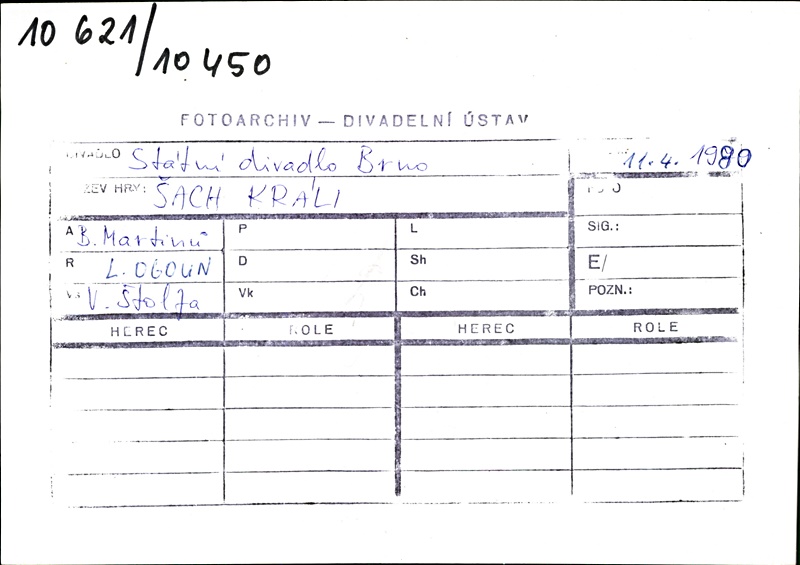 10 621/10 450
FOTOARCHIV — DIVADELNÍ ÚSTAV
DIVADLO Státní divadlo Brno 11.4. 1980
ZEV HRY: ŠACH KRÁLI
A B. Martinů P L SIG.:
R L. OGOUN D Sh E/
V. Štolfa Vk Ch POZN.:
HEREC ROLE HEREC ROLE